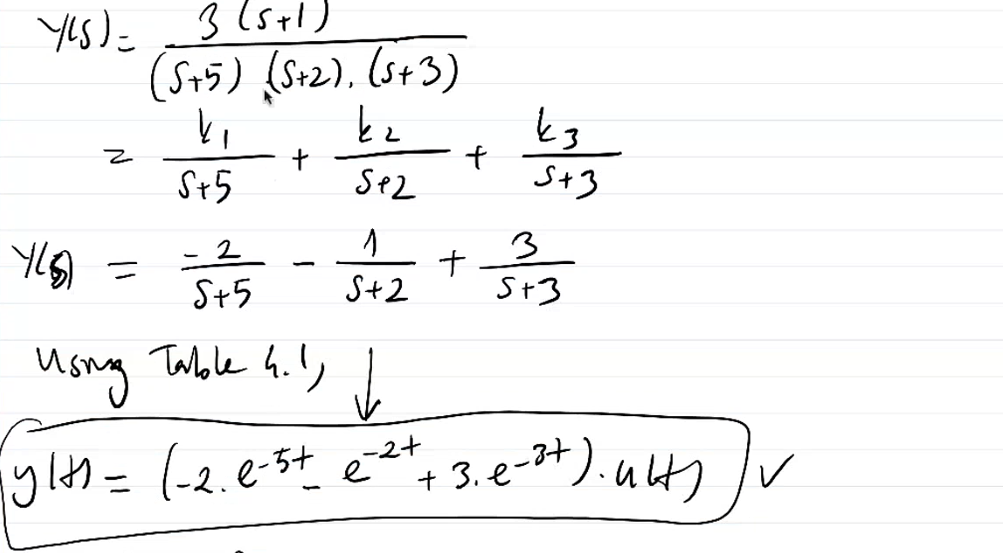 Y(s) = 3 (s+1) / (s+5) (s+2). (s+3)
= k1 / s+5 + k2 / s+2 + k3 / s+3
Y(s) = -2 / s+5 - 1 / s+2 + 3 / s+3
Using Table 4.1, ↓
y(t) = (-2. e^-5t - e^-2t + 3. e^-3t). u(t) ✓